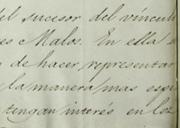 del sucesor del vincul
es Malos. En ella
de hacer representar
la manera mas esp
tengan interés en los